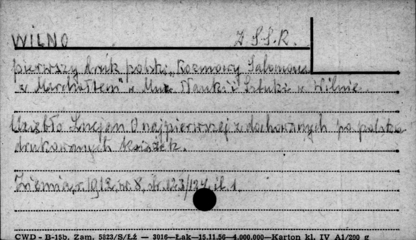 WILNO Z.S.S.R.
pierwszy druk polski "Rozmowy Salomona
z Marchołtem" w Muz. Nauki i Sztuki w Wilnie.
Uziębło Lucjan O najpierwszej z dochowanych po polsku
drukowanych książek.
Ziemia, r. 1912, nr. 8, str. 123/124, il. 1.
CWD - B-15b. Zam. 5823/S/Łż — 3016—Łak—15.11.56—4.000.000—Karton kl. IV A1/200 g